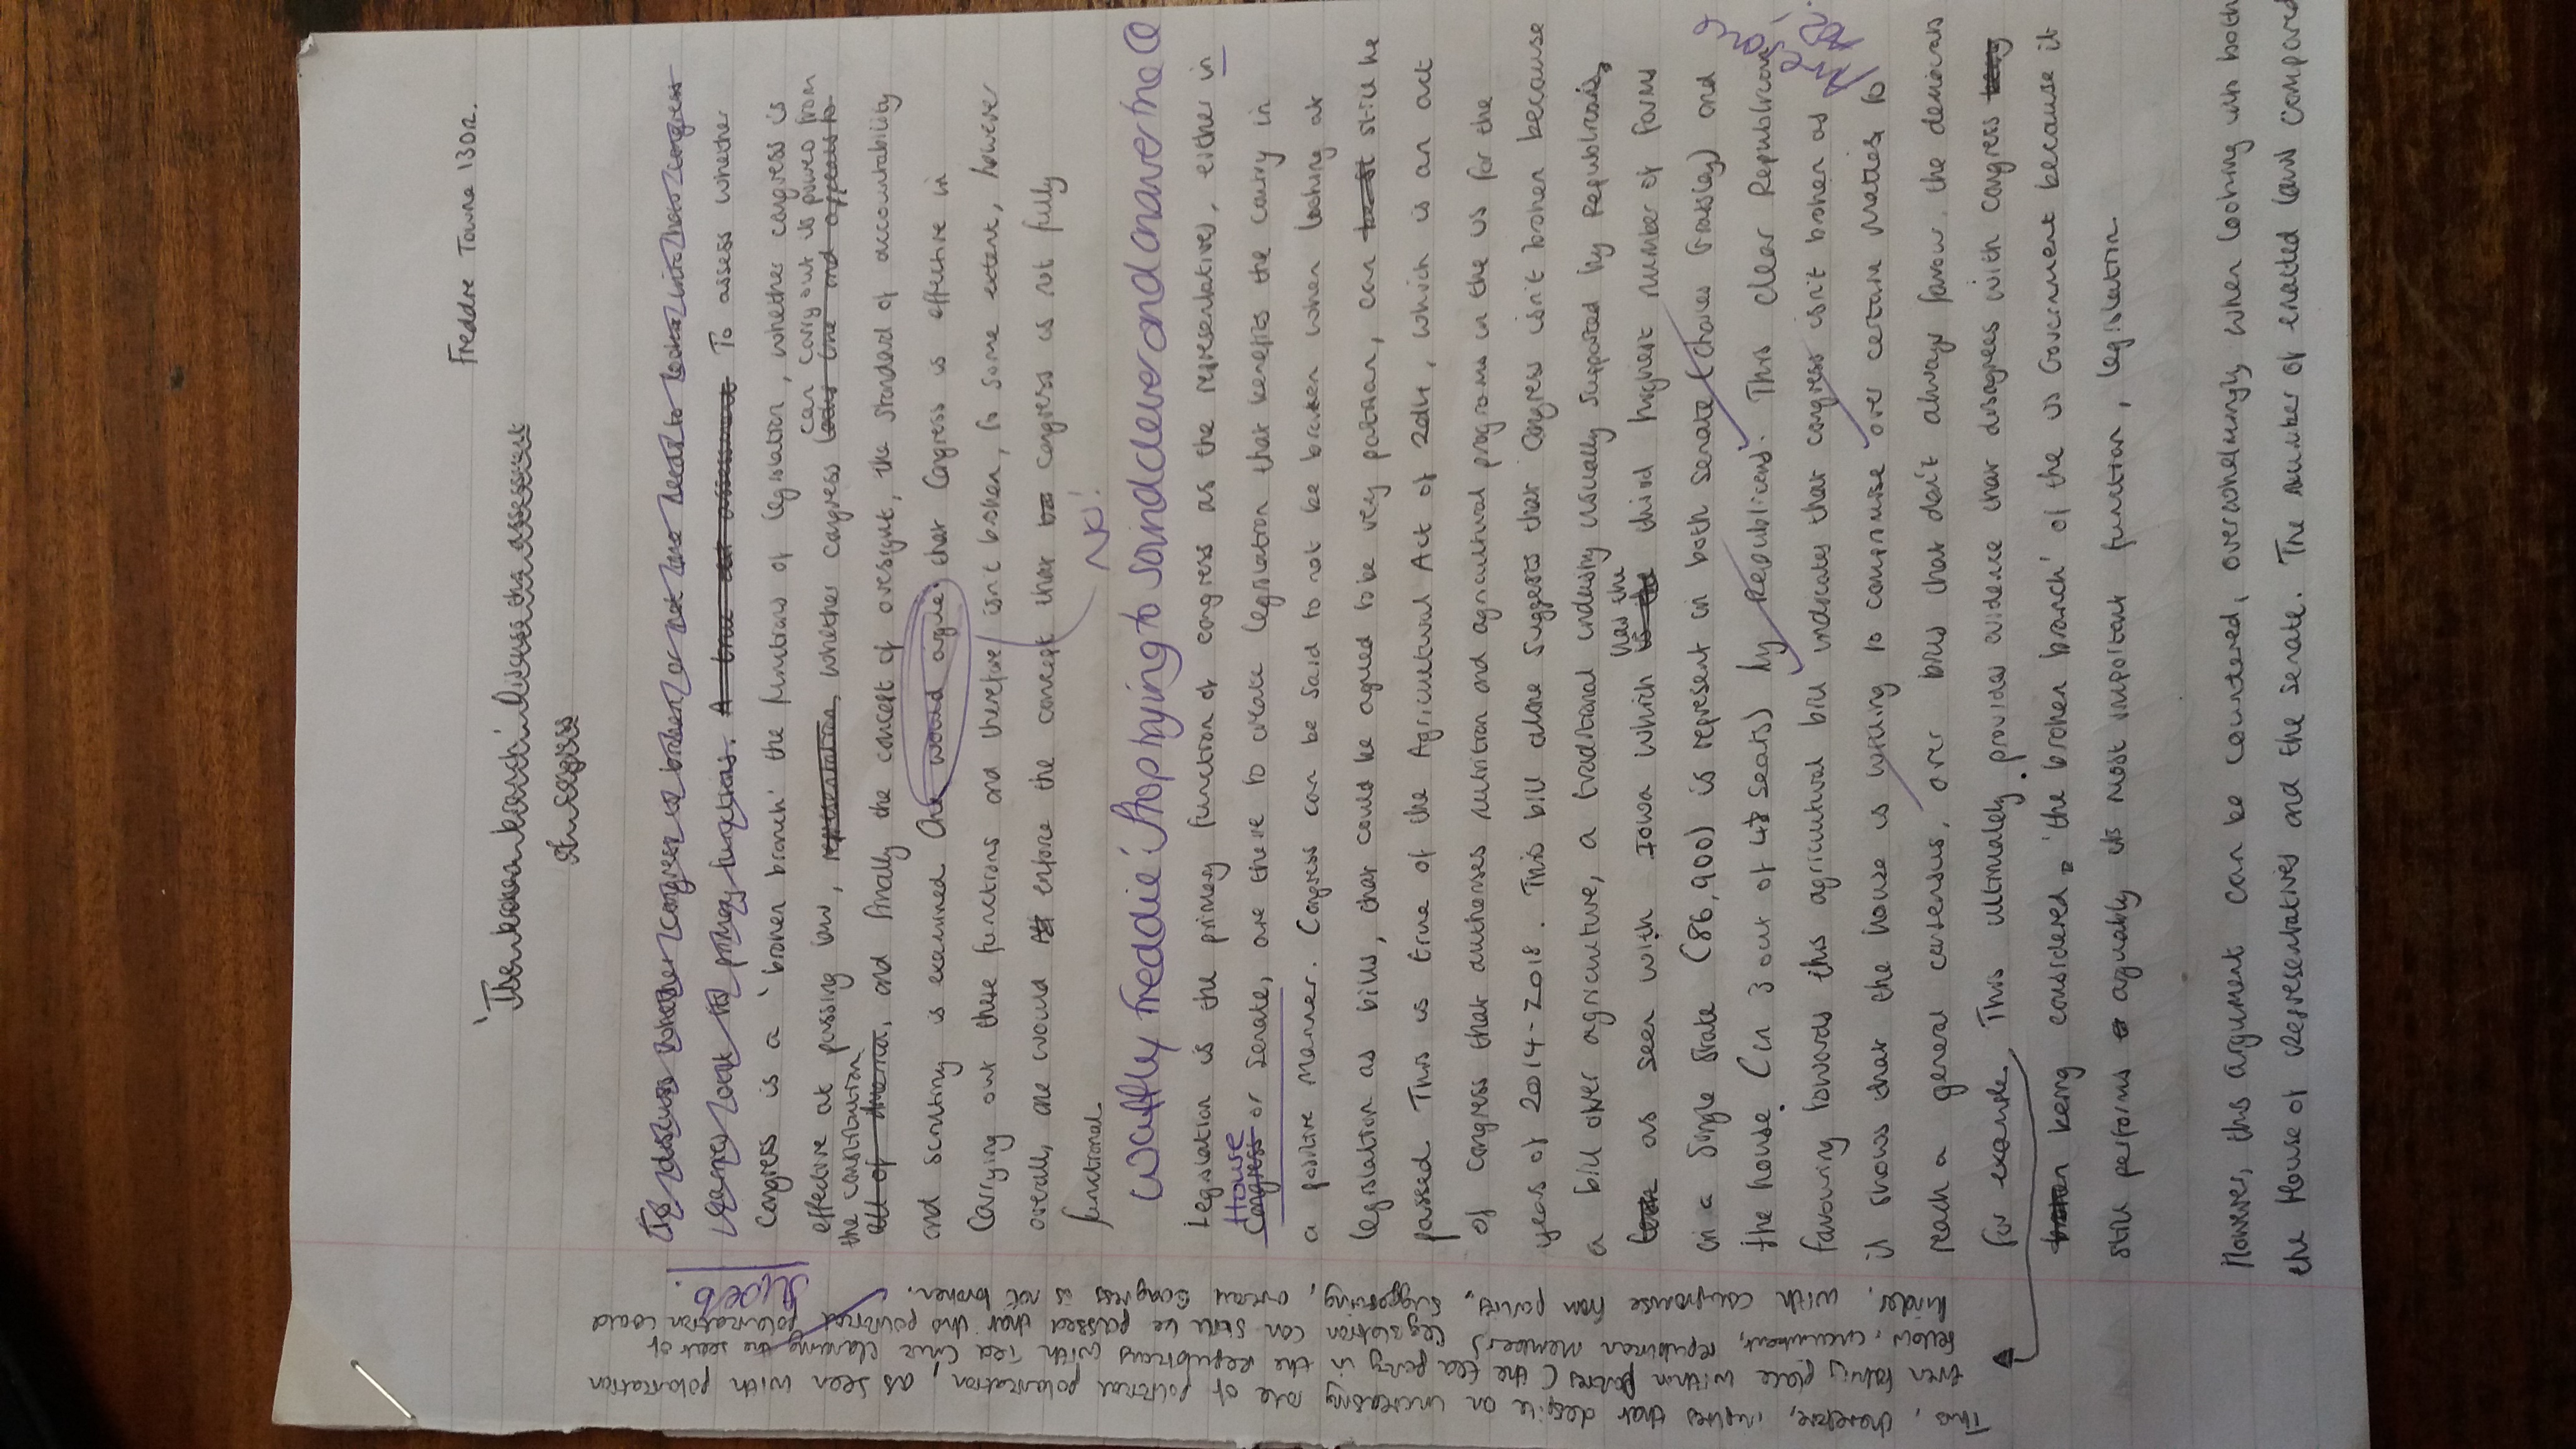 Freddie Towne 13DR.
'The broken branch' Discuss this assessment
of congress
To discuss whether congress is broken or not one needs to look into how congress
carries out its primary functions. A true set assessment To assess whether
Congress is a 'broken branch' the functions of legislation, whether congress is
effective at passing law, representation, whether congress looks like and appeals to
can carry out is powers from
the constitution
all of America, and finally the concept of oversight, the standard of accountability
and scrutiny is examined. One would argue, that Congress is effective in
Carrying out these functions and therefore isn't broken, to some extent, however
overall, one would enforce the concept that congress is not fully
functional.
NO!
Waffly Freddie! Stop trying to sound clever and answer the Q
Legislation is the primary function of congress as the representatives, either in
House
Congress or Senate, are there to create legislation that benefits the country in
a positive manner. Congress can be said to not be broken when looking at
legislation as bills, that could be argued to be very partisan, can still be
passed. This is true of the Agricultural Act of 2014, which is an act
of congress that authorises nutrition and agricultural programs in the US for the
years of 2014-2018. This bill alone suggests that Congress isn't broken because
a bill over agriculture, a traditional industry usually supported by Republicans,
has the
as seen with Iowa which is the third highest number of farms
in a single state (86,900) is represent in both senate (Charles Grassley) and
the house (in 3 out of 4 seats) by Republicans. This clear Republican
favouring towards this agricultural bill indicates that congress isn't broken as
it shows that the house is willing to compromise over certain matters, to
reach a general consensus, over bills that don't always favour the democrats
for example. This ultimately provides evidence that disagrees with congress being
being considered 'the broken branch' of the US Government because it
still performs arguably its most important function, legislation.
However, this argument can be countered, overwhelmingly, when looking with both
the House of Representatives and the senate. The number of enacted laws compared
This, therefore, implies that despite an increasing rate of political polarisation, as seen with polarisation
even taking place within parties (the tea party in the republicans with Ted Cruz claiming the seat of
fellow, incumbent, republican members) legislation can still be passed that this political polarisation could
hinder, with compromise from parties, suggesting, overall congress is not broken.